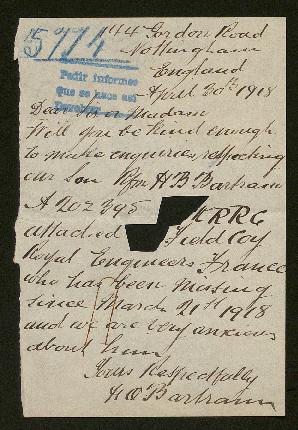 5774
44 Gordon Road
Nottingham
England
April 30th 1918
Pedir informes
que se hace así
Dear Sir or Madam
Will you be kind enough
to make enquiries, respecting
our Son Rfn H B Bartram
A 202395 KRRC
attached Field Coy
Royal Engineers France
who has been missing
since March 21st 1918
and we are very anxious
about him
Yours Respectfully
Bartram